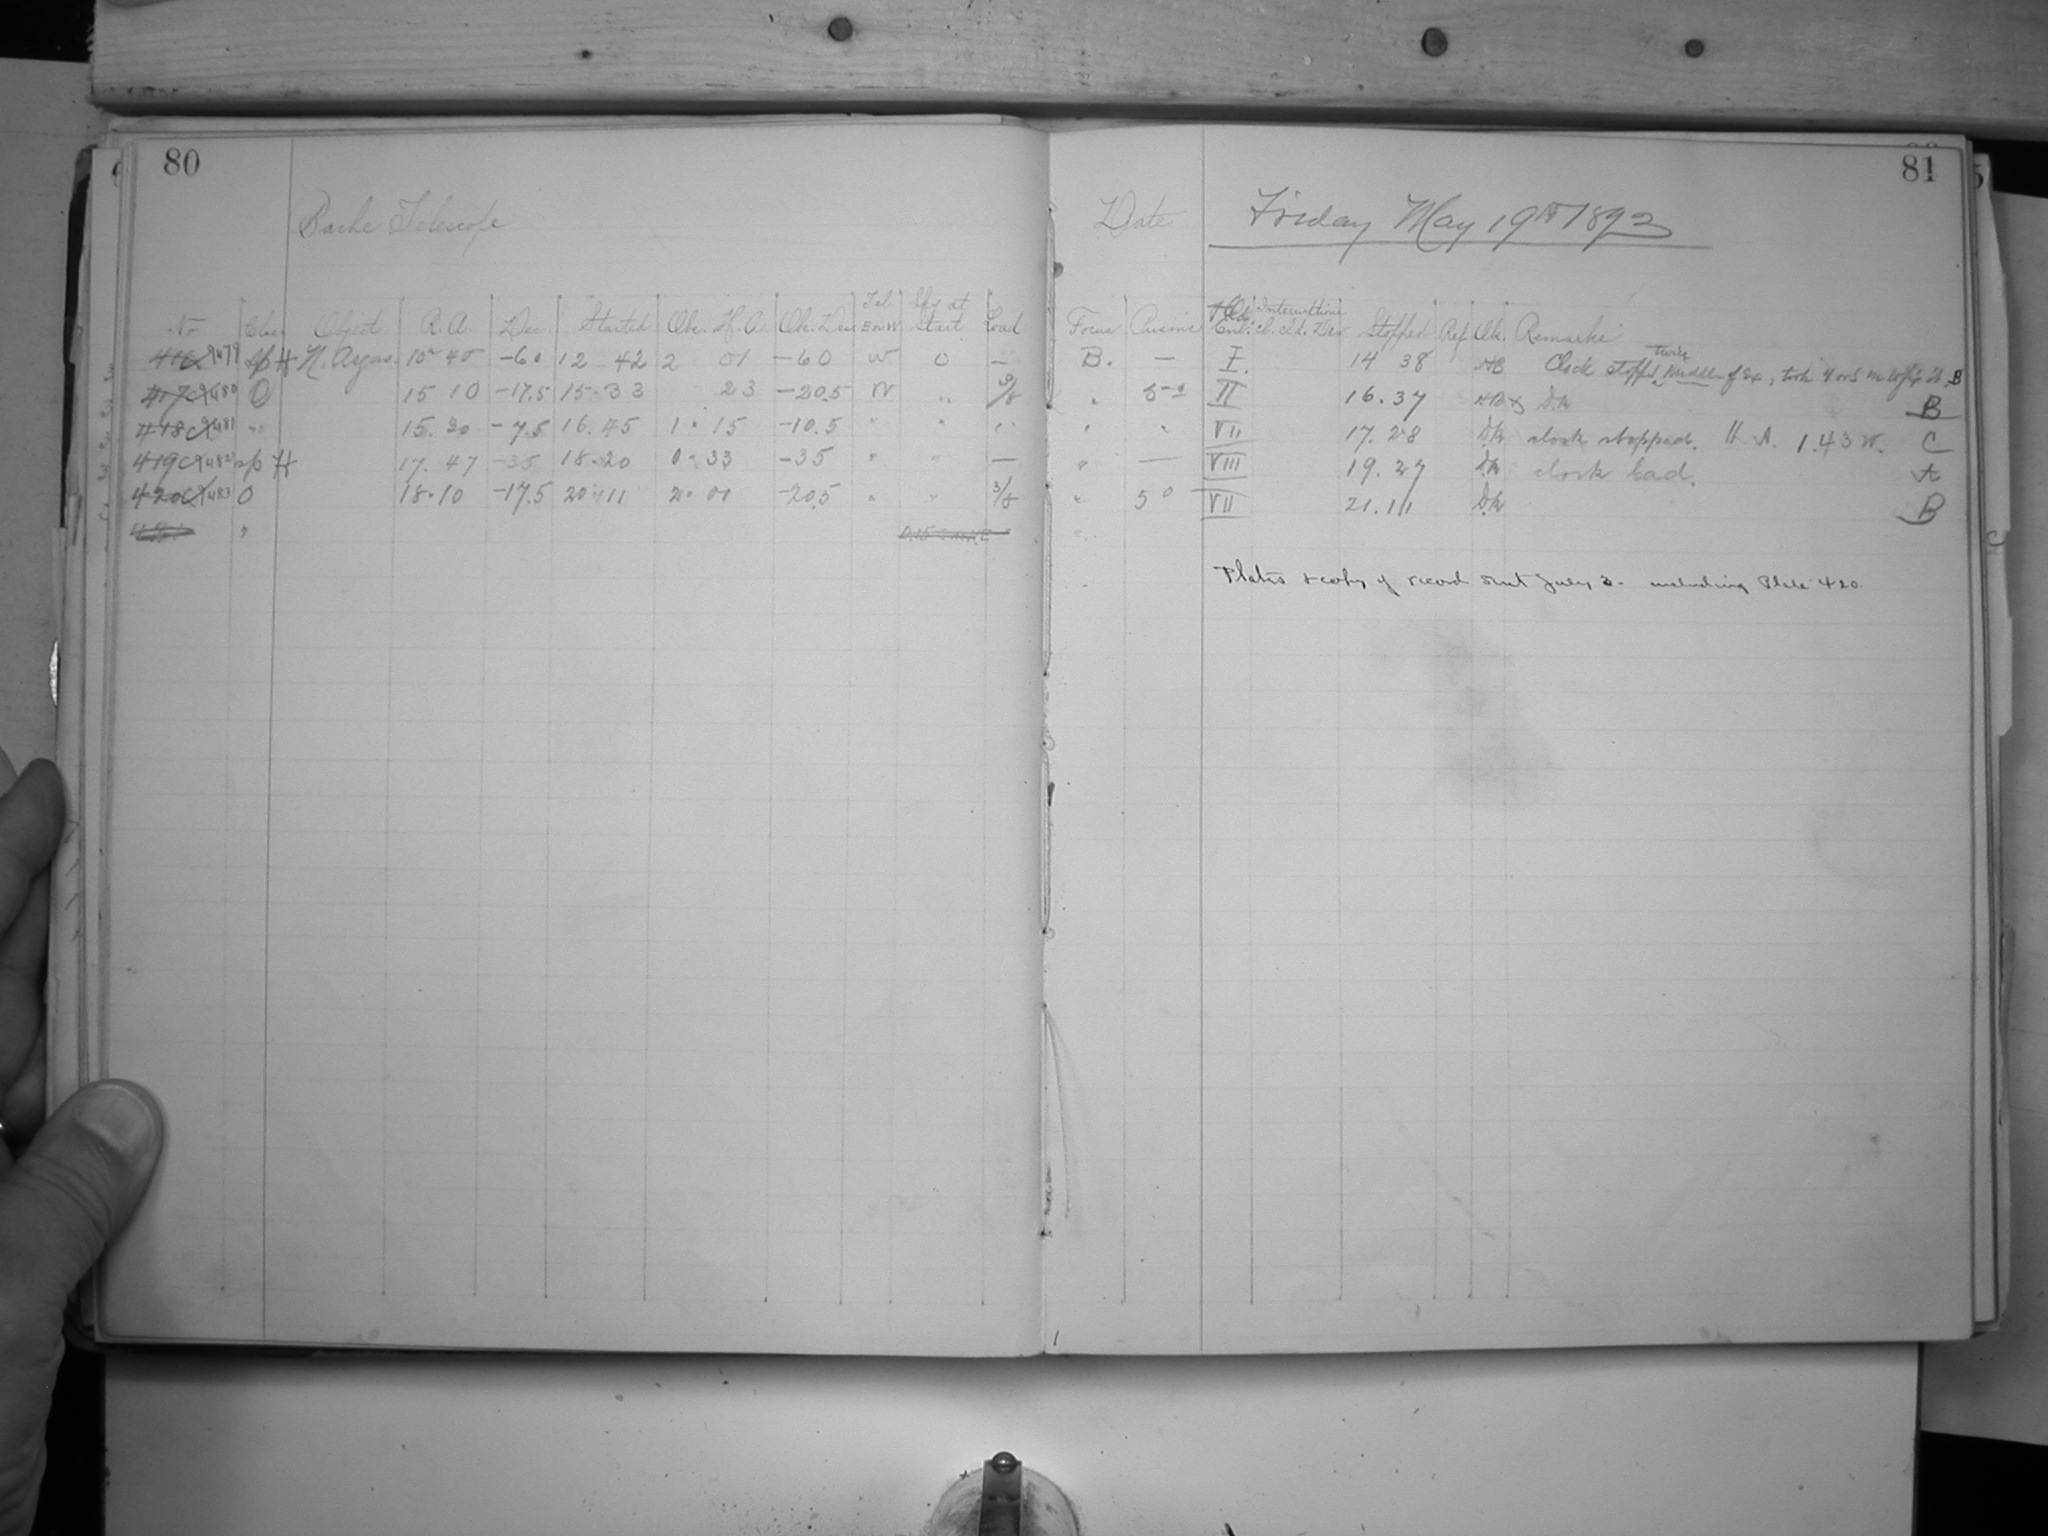 80
Bache Telescope
No Class Object R.A. Dec. Started Obs. H.A. Obs. Dec Tel. E or W Sky at Start Load
416 9479 Sp H N. Argus. 10 40 -60 12 42 2 01 -60 W 0 —
417 9480 O 15 10 -17.5 15.33 23 -20.5 W " 9/8
418 9481 " 15.30 -7.5 16.45 1.15 -10.5 " " "
419 9482 sp H 17.47 -35 18.20 0.33 -35 " " —
420 9483 O 18.10 -17.5 20 11 2.01 -20.5 " " 3/8
"
81
Date Friday May 19th 1893
Focus Prisms Stopped Ref Obs. Remarks
B. — I. 14 38 Clock stopped twice middle of ex, took 4 or 5 m B
" II 16.37 D.K. B
" " VII 17.28 D.K. clock stopped. H. A. 1.43 W. C
" — VIII 19.27 D.K. clock bad. A
" 5° VII 21.11 D.K. B
"
Plates & copy of record sent July 3. including Plate 420.